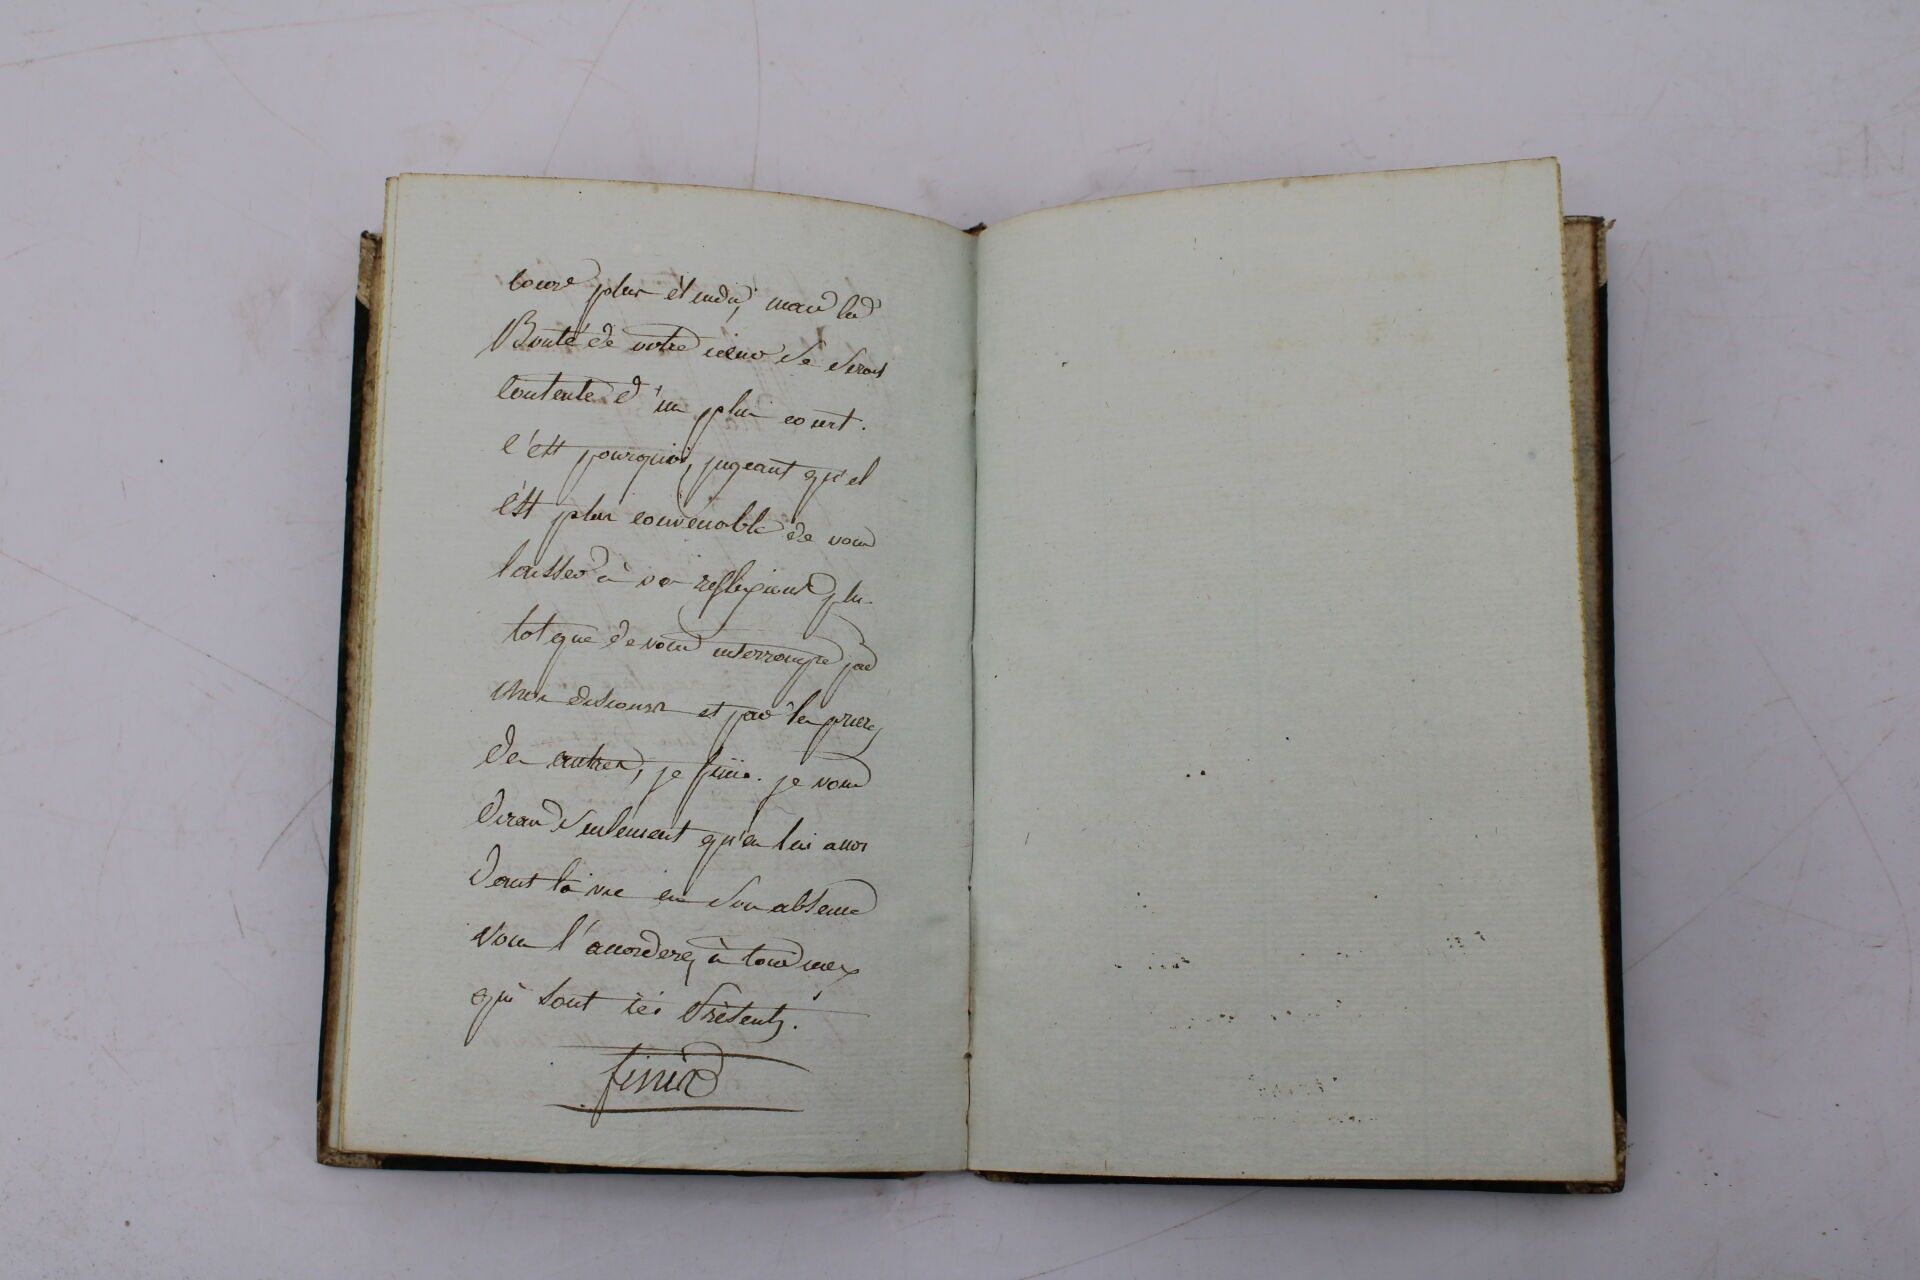 cours plus étendu, mais la
Bonté de votre cœur se serait
Contenté d'un plus court.
C'est pourquoi, jugeant qu'il
est plus convenable de vous
laisser à vos réflexions plu-
tot que de vous interrompre par
mon discours et par les prières
des autres, je finis. je vous
dirai seulement qu'en lui accor
dant la vie en son absence
vous l'accorderez à tous ceux
qui sont ici Présents.
finis